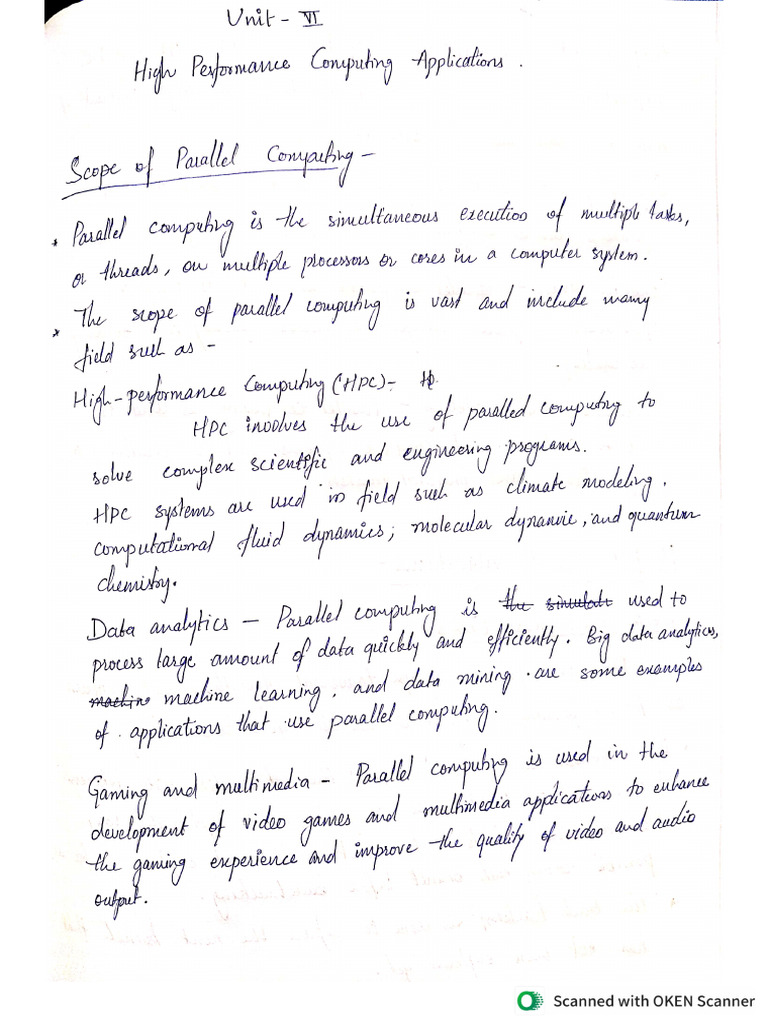 Unit - VI
High Performance Computing Applications.
Scope of Parallel Computing -
* Parallel computing is the simultaneous execution of multiple tasks,
or threads, on multiple processors or cores in a computer system.
* The scope of parallel computing is vast and include many
field such as -
High-performance Computing (HPC) -
HPC involves the use of paralled computing to
solve complex scientific and engineering programs.
HPC systems are used in field such as climate modeling.
computational fluid dynamics; molecular dynamic, and quantum
chemistry.
Data analytics - Parallel computing is the simulat used to
process large amount of data quickly and efficiently. Big data analytics,
machin machine learning, and data mining are some examples
of applications that use parallel computing.
Gaming and multimedia - Parallel computing is used in the
development of video games and multimedia applications to enhance
the gaming experience and improve the quality of video and audio
output.
Scanned with OKEN Scanner